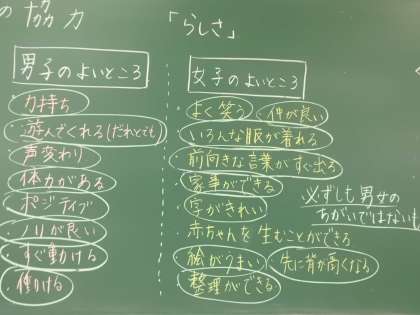 の協力
「らしさ」
男子のよいところ
・力持ち
・遊んでくれる(だれとでも)
・声変わり
・体力がある
・ポジティブ
・ノリが良い
・すぐ動ける
・働ける
女子のよいところ
・よく笑う ・仲が良い
・いろんな服が着れる
・前向きな言葉がすぐ出る
・家事ができる
・字がきれい
・赤ちゃんを生むことができる
・絵がうまい ・先に背が高くなる
・整理ができる
必ずしも男女の
ちがいではないも